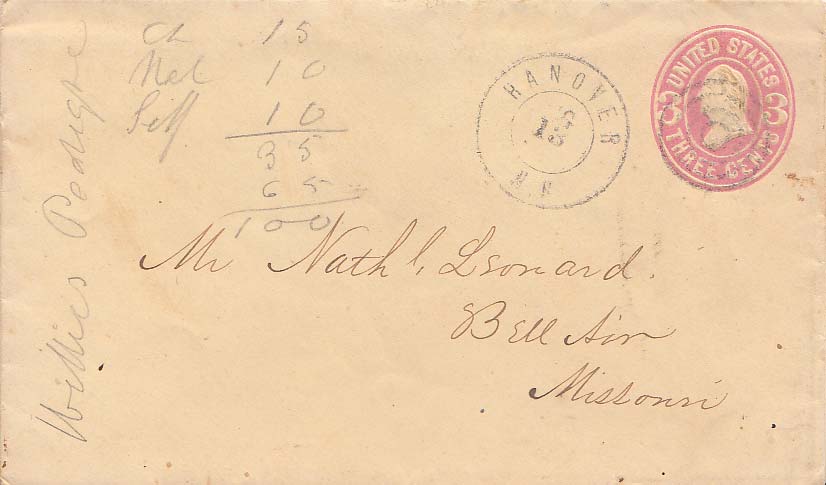 Ch 15
Nel 10
10
35
65
100
Willies Pedigre
HANOVER
N.H
UNITED STATES
3 3
THREE CENTS
Mr Nathl. Leonard.
Bell Air
Missouri